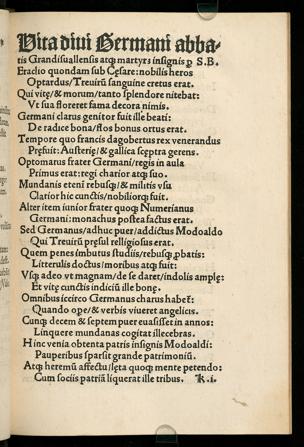 Vita diui Germani abba-
tis Grandisuallensis atq̃ martyrs insignis ꝑ S.B.
Eradio quondam sub Cęsare: nobilis heros
Optardus/Treuirū sanguine cretus erat.
Qui vitę/& morum/tanto splendore nitebat:
Vt sua floreret fama decora nimis.
Germani clarus genitor fuit ille beati:
De radice bona/flos bonus ortus erat.
Tempore quo francis dagobertus rex venerandus
Pręfuit: Austerię/& gallica sceptra gerens.
Optomarus frater Germani/regis in aula
Primus erat: regi charior atq̃ suo.
Mundanis eteni rebusq̃/& militis vsu
Clarior hic cunctis/nobiliorq̃ fuit.
Alter item iunior frater quoq̃ Numerianus
Germani: monachus postea factus erat.
Sed Germanus/adhuc puer/addictus Modoaldo
Qui Treuirū pręsul relligiosus erat.
Quem penes imbutus studiis/rebusq̃ ꝓbatis:
Litterulis doctus/moribus atq̃ fuit:
Vsq̃ adeo vt magnam/de se daret/indolis amplę:
Et vitę cunctis indiciū ille bonę.
Omnibus iccirco Germanus charus habet̃:
Quando ope/& verbis viueret angelicis.
Cunq̃ decem & septem puer euasisset in annos:
Linquere mundanas cogitat illecebras.
Hinc venia obtenta patris insignis Modoaldi:
Pauperibus sparsit grande patrimoniū.
Atq̃ heremū affectu/lęta quoq̃ mente petendo:
Cum sociis patriā liquerat ille tribus. k.i.